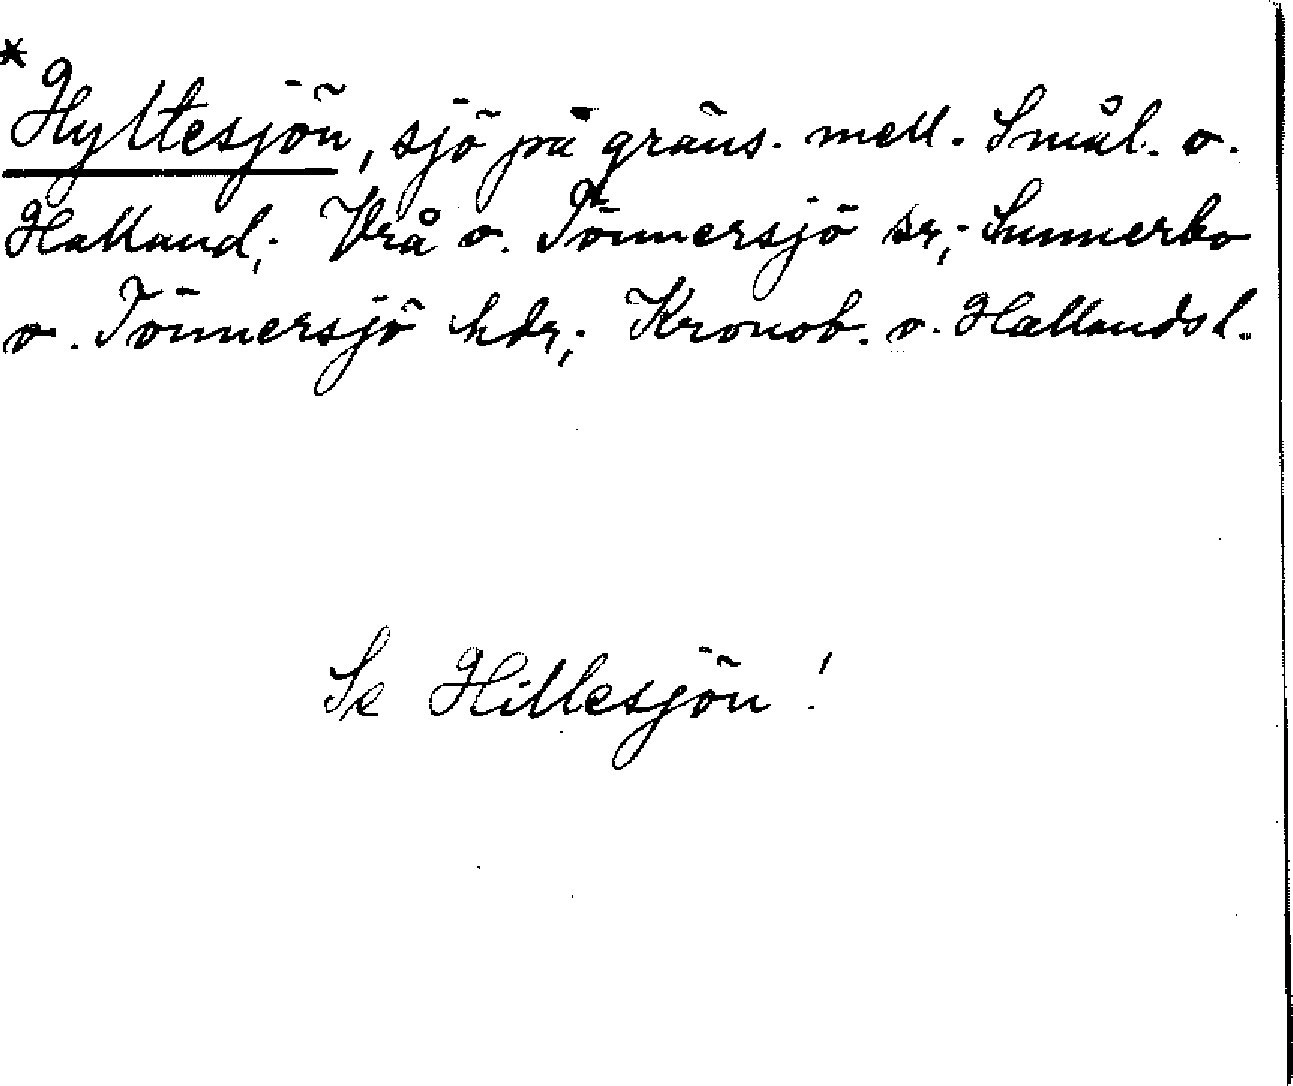 * Hyltesjön, sjö på gräns. mell. Smål. o.
Halland; Vrå o. Tönnersjö sr; Sunnerbo
o. Tönnersjö hdr; Kronob. o. Hallands l.
Se Hillesjön!